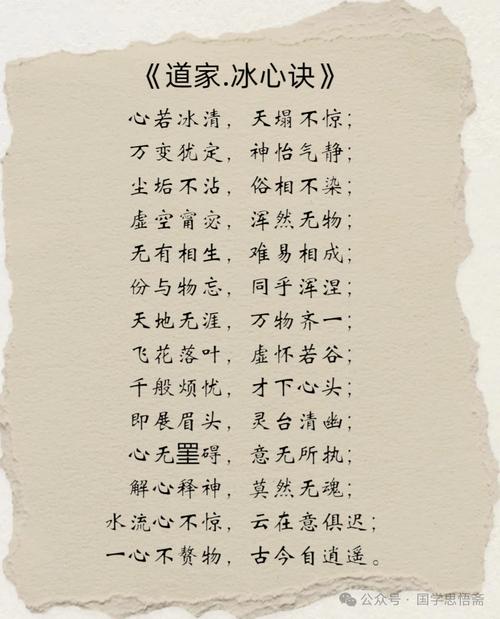 《道家.冰心诀》
心若冰清，天塌不惊；
万变犹定，神怡气静；
尘垢不沾，俗相不染；
虚空甯宓，浑然无物；
无有相生，难易相成；
份与物忘，同乎浑涅；
天地无涯，万物齐一；
飞花落叶，虚怀若谷；
千般烦忧，才下心头；
即展眉头，灵台清幽；
心无罣碍，意无所执；
解心释神，莫然无魂；
水流心不惊，云在意俱迟；
一心不赘物，古今自逍遥。
公众号·国学思悟斋